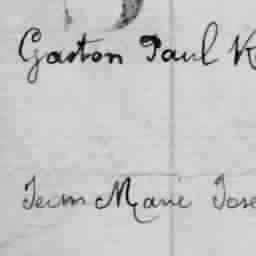 Gaston Paul K
Jean Marie Jose